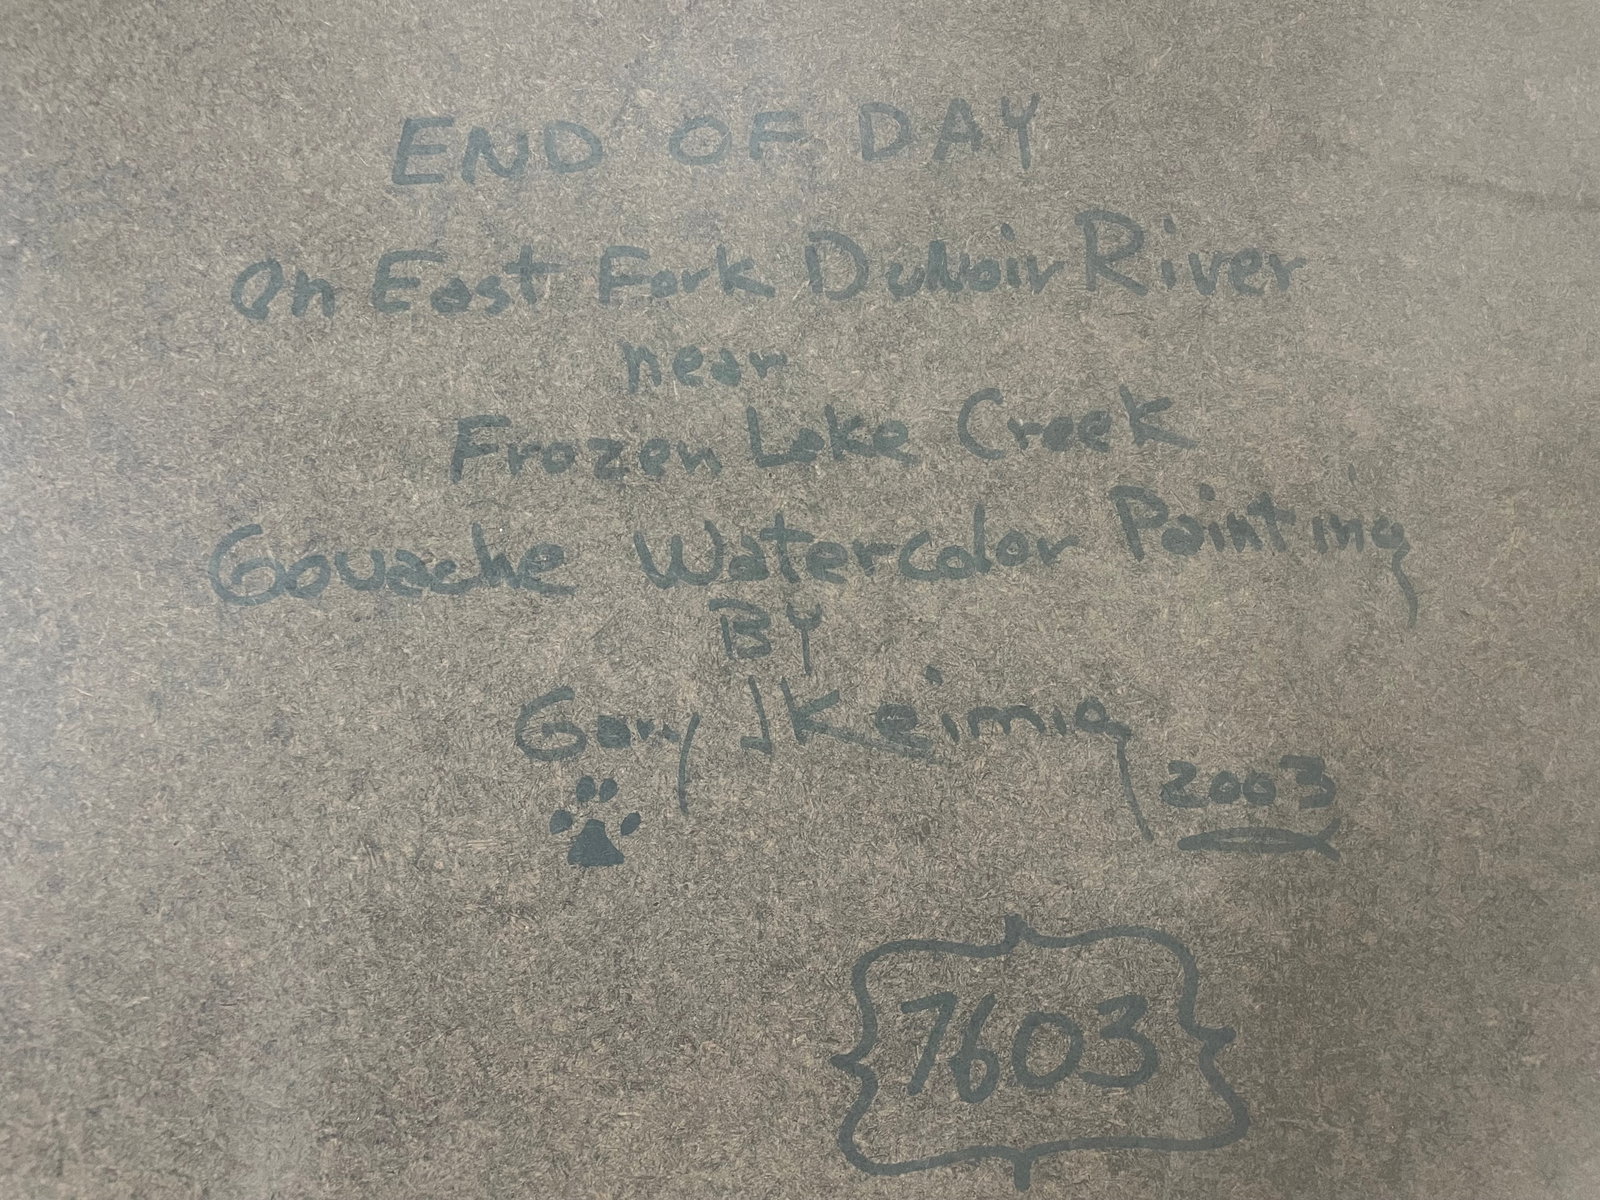 END OF DAY
On East Fork DuNoir River
near
Frozen Lake Creek
Gouache Watercolor Painting
BY
Gary J Keimig
2003
7603